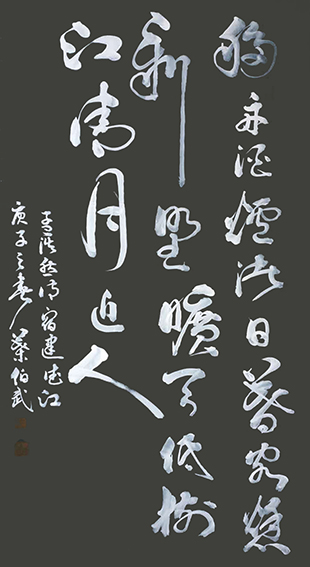 移舟泊煙渚日暮客愁
新野曠天低樹
江清月近人
孟浩然诗宿建德江
庚子之春蔡伯武